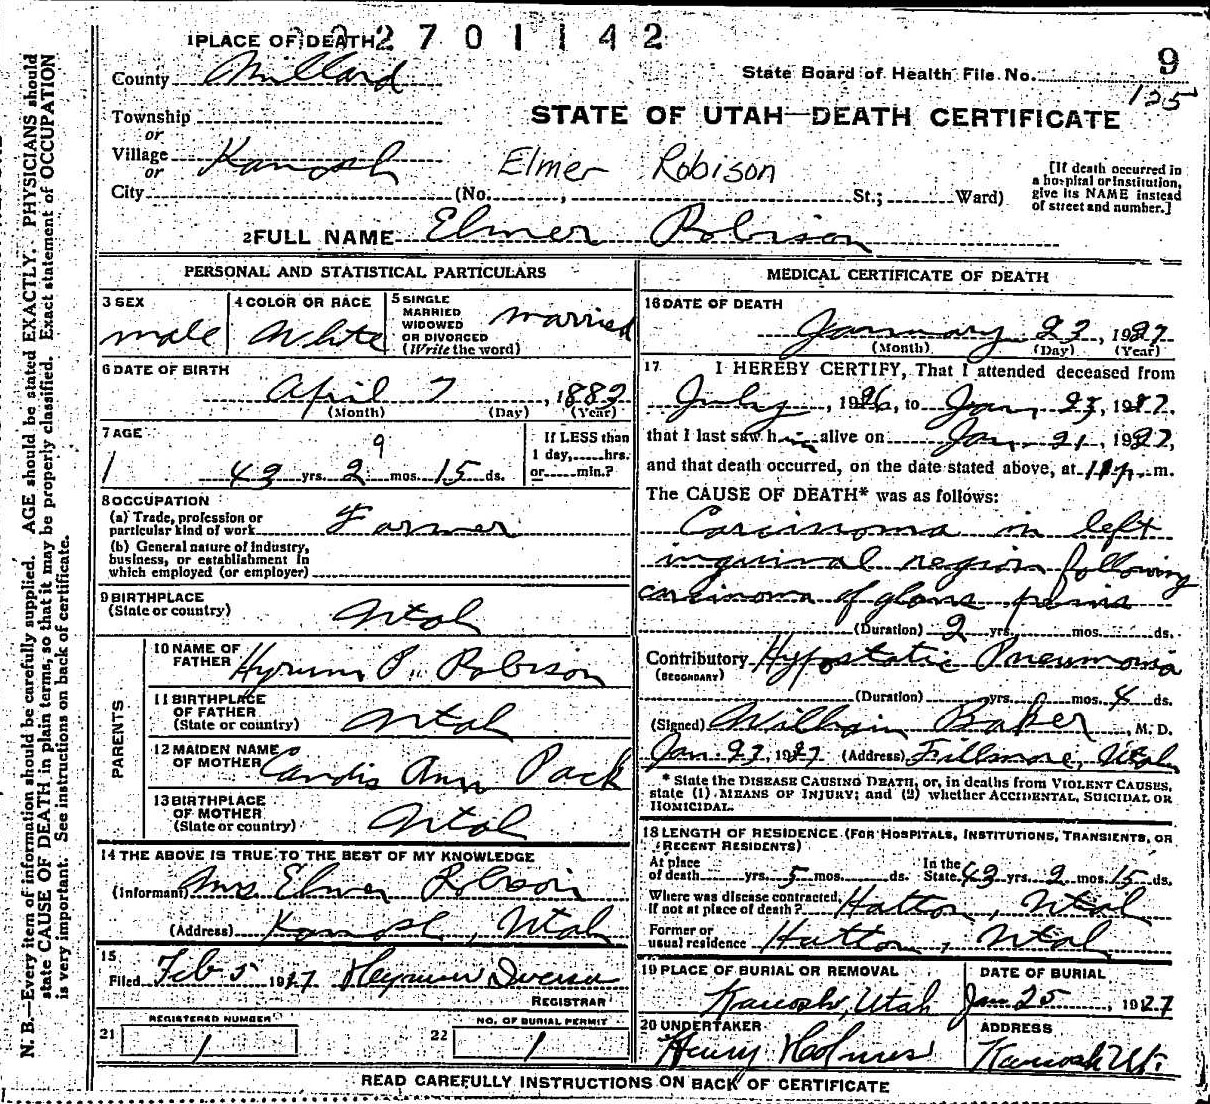 2 2 7 0 1 1 4 2
1 PLACE OF DEATH
County Millard
State Board of Health File No. 9
125
Township
or
STATE OF UTAH—DEATH CERTIFICATE
Village Kanosh
or
Elmer Robison
City (No. , St.; Ward)
[If death occurred in
a hospital or institution,
give its NAME instead
of street and number.]
2 FULL NAME Elmer Robison
PERSONAL AND STATISTICAL PARTICULARS
3 SEX
male
4 COLOR OR RACE
White
5 SINGLE
MARRIED
WIDOWED
OR DIVORCED
(Write the word)
married
6 DATE OF BIRTH
April 7, 1883
(Month) (Day) (Year)
7 AGE
9
43 yrs. 2 mos. 15 ds.
If LESS than
1 day, hrs.
or min.?
8 OCCUPATION
(a) Trade, profession or
particular kind of work Farmer
(b) General nature of industry,
business, or establishment in
which employed (or employer)
9 BIRTHPLACE
(State or country) Utah
PARENTS
10 NAME OF
FATHER Hyrum P. Robison
11 BIRTHPLACE
OF FATHER
(State or country) Utah
12 MAIDEN NAME
OF MOTHER Candis Ann Pack
13 BIRTHPLACE
OF MOTHER
(State or country) Utah
14 THE ABOVE IS TRUE TO THE BEST OF MY KNOWLEDGE
(Informant) Mrs. Elmer Robison
(Address) Kanosh, Utah
15
Filed Feb 5 1927
REGISTRAR
21 REGISTERED NUMBER
1
22 NO. OF BURIAL PERMIT
1
MEDICAL CERTIFICATE OF DEATH
16 DATE OF DEATH
January 23, 1927
(Month) (Day) (Year)
17 I HEREBY CERTIFY, That I attended deceased from
July, 1926, to Jan. 23, 1927.
that I last saw him alive on Jan. 21, 1927,
and that death occurred, on the date stated above, at m.
The CAUSE OF DEATH* was as follows:
Carcinoma in left
inguinal region following
carcinoma of glans penis
(Duration) 2 yrs. mos. ds.
Contributory Hypostatic Pneumonia
(SECONDARY)
(Duration) yrs. mos. 4 ds.
(Signed) William Baker, M. D.
Jan 23, 1927 (Address) Fillmore, Utah
* State the DISEASE CAUSING DEATH, or, in deaths from VIOLENT CAUSES,
state (1) MEANS OF INJURY; and (2) whether ACCIDENTAL, SUICIDAL OR
HOMICIDAL.
18 LENGTH OF RESIDENCE (FOR HOSPITALS, INSTITUTIONS, TRANSIENTS, OR
RECENT RESIDENTS)
At place
of death yrs. 5 mos. ds.
In the
State 43 yrs. 2 mos. 15 ds.
Where was disease contracted,
if not at place of death? Hatton, Utah
Former or
usual residence Hatton, Utah
19 PLACE OF BURIAL OR REMOVAL
Kanosh, Utah
DATE OF BURIAL
Jan 25, 1927
20 UNDERTAKER
Henry Holmes
ADDRESS
Kanosh Ut.
READ CAREFULLY INSTRUCTIONS ON BACK OF CERTIFICATE
N. B.—Every item of information should be carefully supplied. AGE should be stated EXACTLY. PHYSICIANS should
state CAUSE OF DEATH in plain terms, so that it may be properly classified. Exact statement of OCCUPATION
is very important. See instructions on back of certificate.